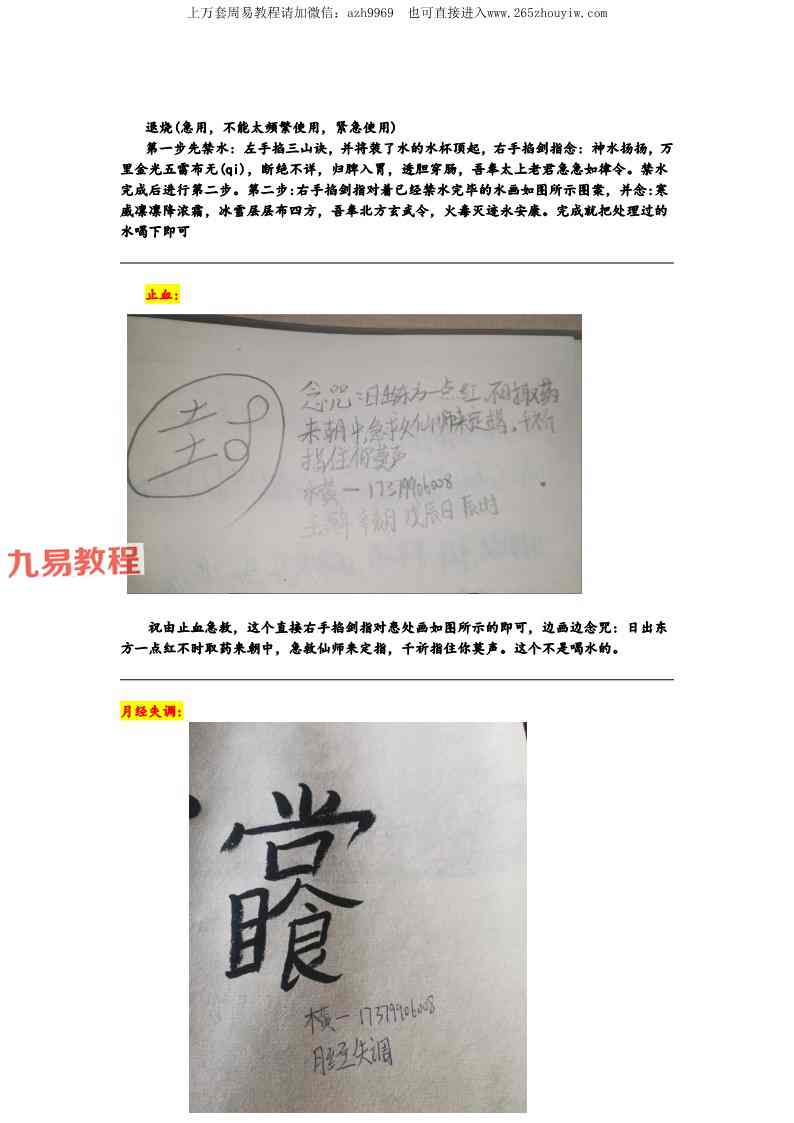 上万套周易教程请加微信：azh9969 也可直接进入www.265zhouyiw.com
退烧(急用，不能太频繁使用，紧急使用)
第一步先禁水：左手掐三山诀，并将装了水的水杯顶起，右手掐剑指念：神水扬扬，万
里金光五雷布无(qi)，断绝不详，归脾入胃，透胆穿肠，吾奉太上老君急急如律令。禁水
完成后进行第二步。第二步:右手掐剑指对着已经禁水完毕的水画如图所示图案，并念:寒
威凛凛降浓霜，冰雪层层布四方，吾奉北方玄武令，火毒灭迹永安康。完成就把处理过的
水喝下即可
止血:
念咒：日出东方一点红，不时取药
来朝中，急求仙师来定指，千祈
指住你莫声
横一 17379906008
辛朝 戊辰日 辰时
九易教程
祝由止血急救，这个直接右手掐剑指对患处画如图所示的即可，边画边念咒：日出东
方一点红不时取药来朝中，急救仙师来定指，千祈指住你莫声。这个不是喝水的。
月经失调:
横一 17379906008
月经失调